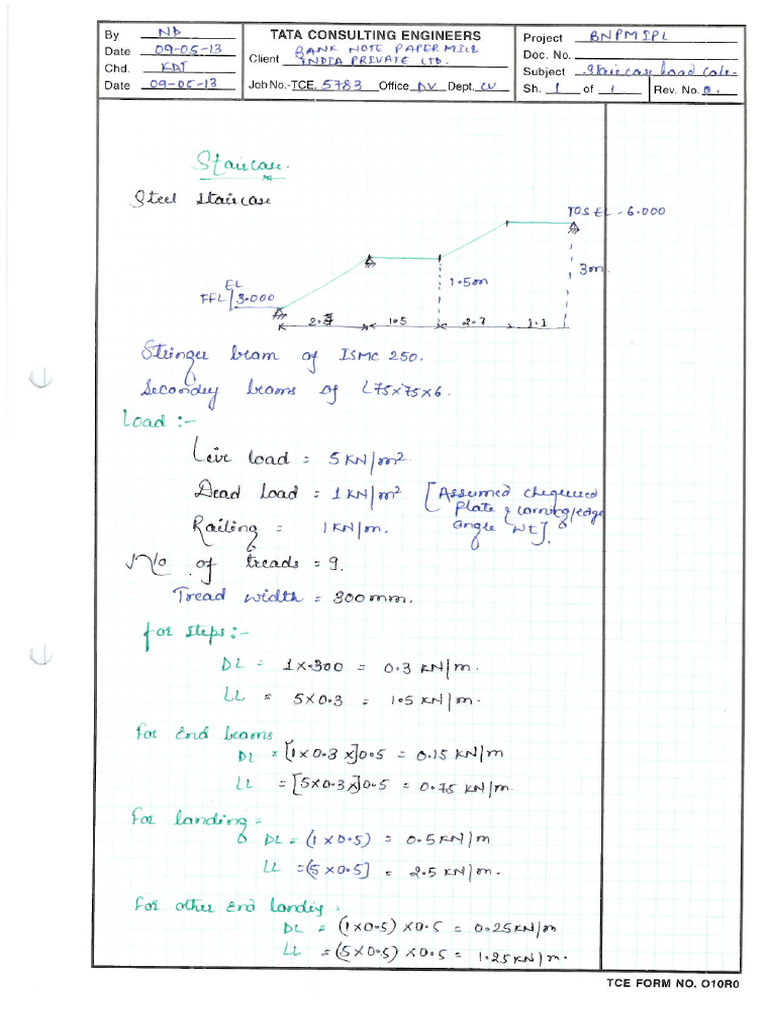 By ND
Date 09-05-13
Chd. KDJ
Date 09-05-13
TATA CONSULTING ENGINEERS
Client BANK NOTE PAPER MILL
INDIA PRIVATE LTD.
Job No.-TCE. 5783 Office DV Dept. CV
Project BNPMIPL
Doc. No.
Subject Staircase load calc.
Sh. 1 of 1 Rev. No. 0.
Staircase.
Steel staircase
TOS EL - 6.000
3m
1.5m
EL
FFL 3.000
1.5 2.7 1.1
Stringer beam of ISMC 250.
Secondry beams of L75x75x6.
Load :-
Live load = 5 KN/m²
Dead load = 1 KN/m² [Assumed chequered
plate & /edge
angle wt].
Railing = 1 KN/m.
No of treads = 9.
Tread width = 300mm.
for steps:-
DL = 1x.300 = 0.3 KN/m.
LL = 5x0.3 = 1.5 KN/m.
for end beams
DL = [1x0.3x]0.5 = 0.15 KN/m
LL = [5x0.3x]0.5 = 0.75 KN/m.
for landing =
DL = (1x0.5) = 0.5 KN/m
LL = (5x0.5] = 2.5 KN/m.
for other end landig.
DL = (1x0.5) x0.5 = 0.25KN/m
LL = (5x0.5) x0.5 = 1.25 KN/m.
TCE FORM NO. O10R0